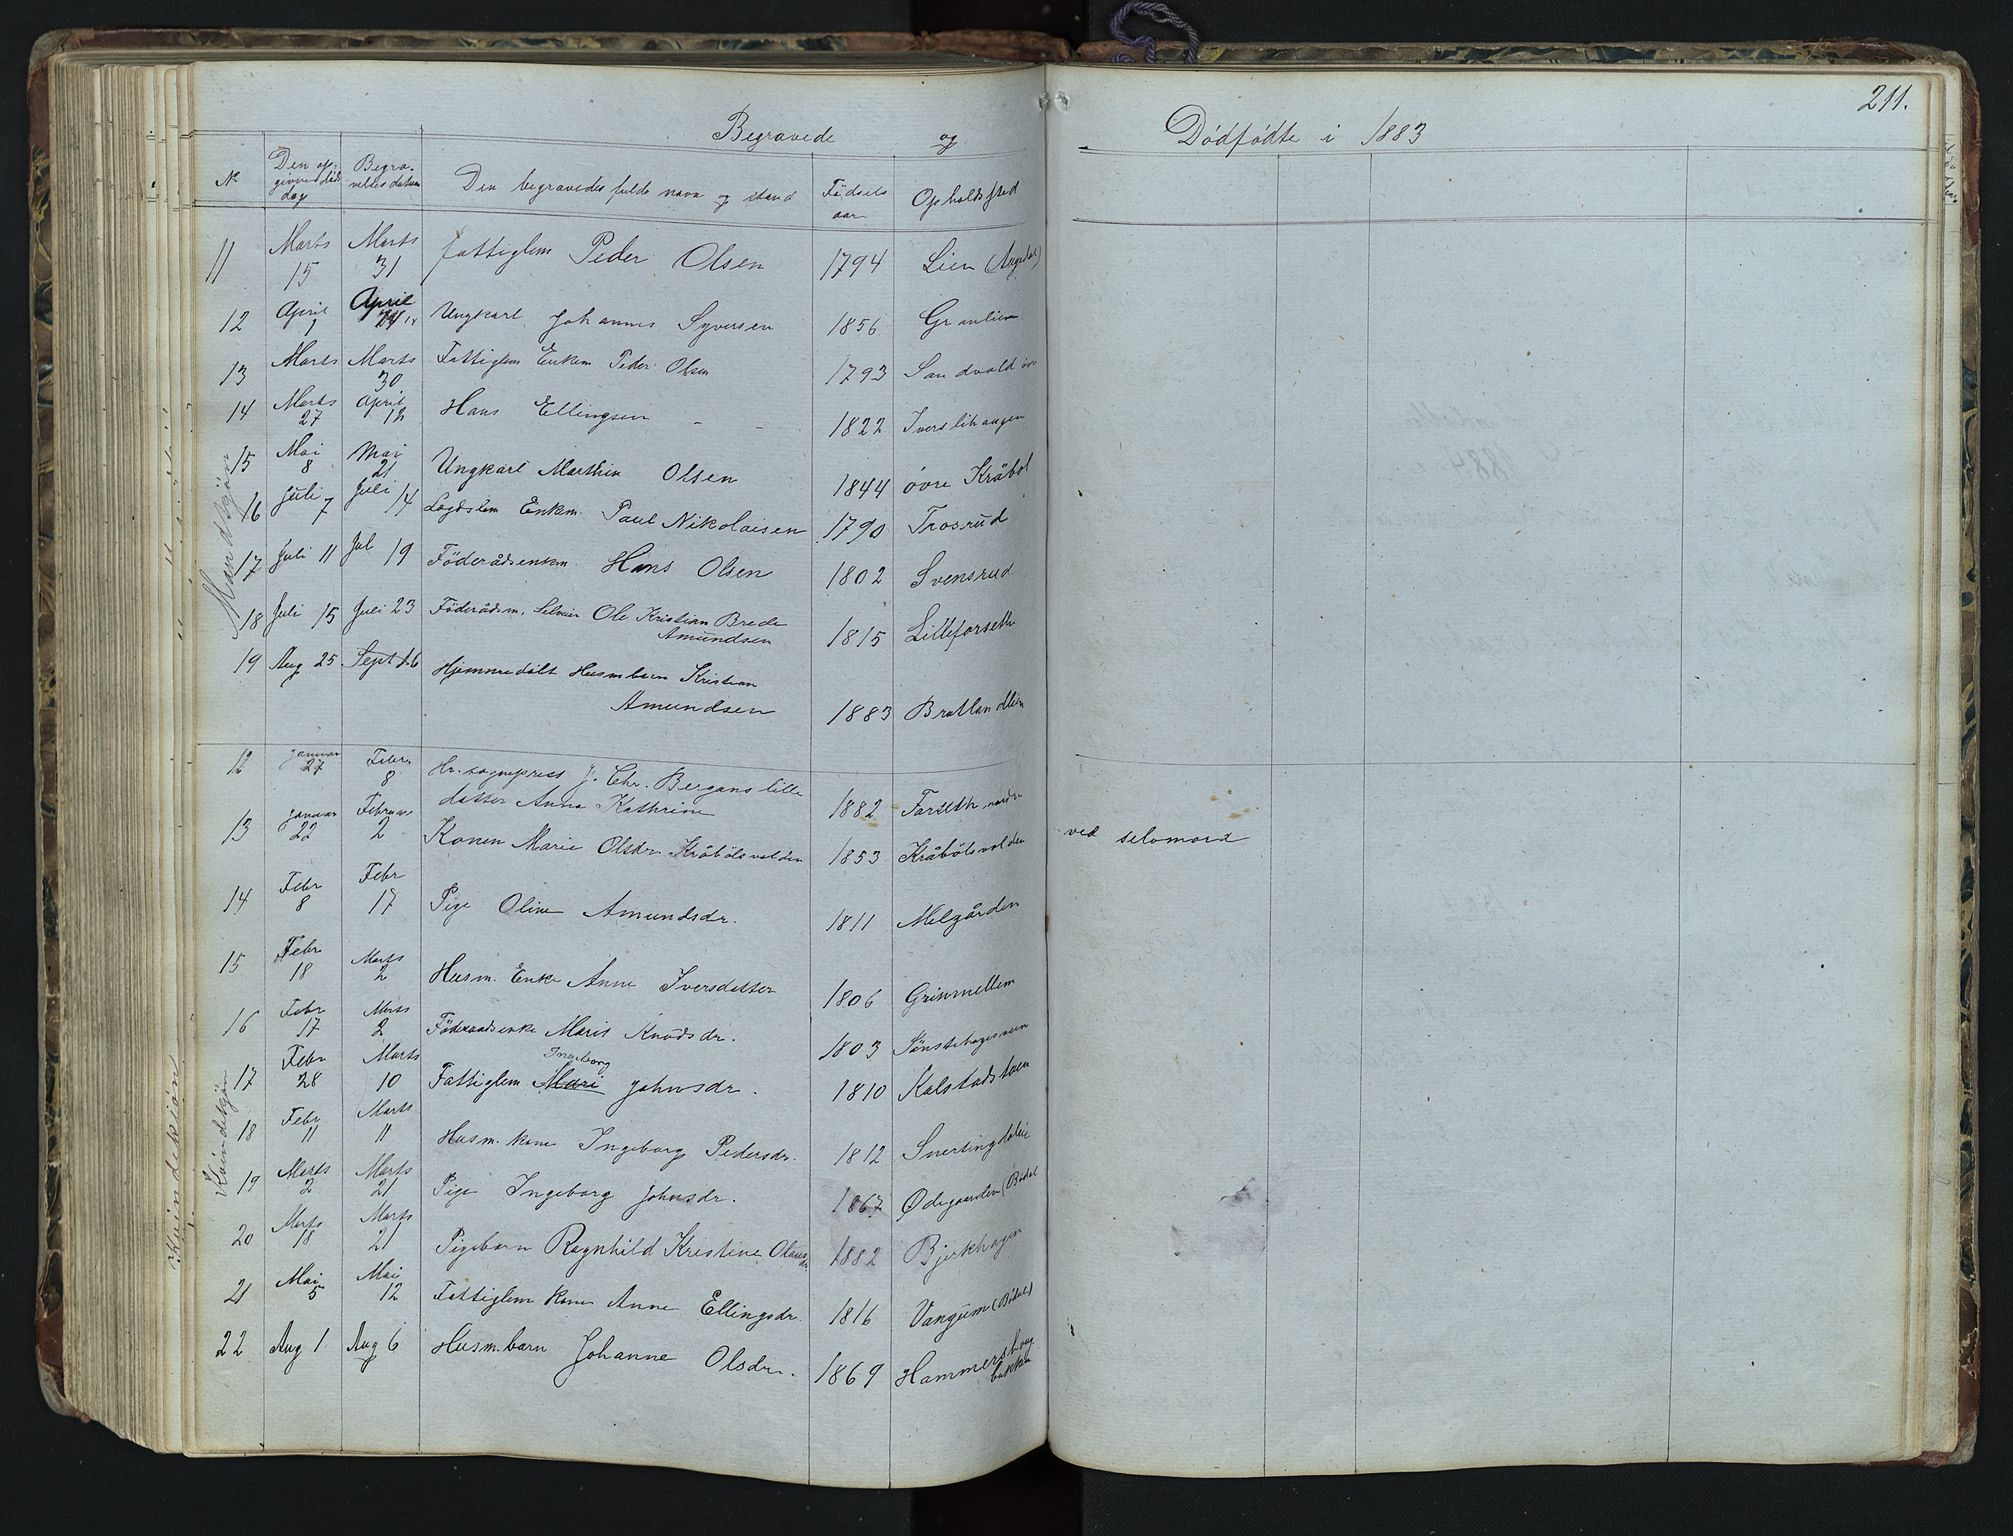 211.
Begravede og Dødfødte i 1883
No Den op- givne døds dag Begra- velses datum Den begravedes fulde navn og stand Fødsels aar Opholdssted
Mandkjøn
11 Marts 15 Marts 31 Fattiglem Peder Olsen 1794 Lien (Augedal)
12 April 1 April 14 Ungkarl Johannes Syversen 1856 Granlien
13 Marts Marts 30 Fattiglem Enkem Peder Olsen 1793 Sandvold øvre
14 Marts 27 April 12 Hans Ellingsen - - 1822 Iverslihaugen
15 Mai 8 Mai 21 Ungkarl Marthin Olsen 1844 øvre Kråbøl
16 Juli 7 Juli 14 Lægdslem Enkem. Paul Nikolaisen 1790 Trosrud
17 Juli 11 Jul 19 Föderådsenkm. Hans Olsen 1802 Svensrud
18 Juli 15 Juli 23 Föderådsm. Selveier Ole Kristian Brede
Amundsen 1815 Lilleforseth
19 Aug 25 Sept 16 Hjemmedøbt Husmbarn Kristian
Amundsen 1883 Bratlandlien
Kvindekjøn
12 Januar 27 Febr 8 Hr. sognepræst J. Chr. Bergans lille
datter Anna Kathrine 1882 Forseth nordre
13 Januar 22 Februar 2 Konen Marie Olsdr Kråbölsvolden 1853 Kråbölsvolden ved selvmord
14 Febr 8 Febr 17 Pige Oline Amundsdr. 1811 Melgården
15 Febr 18 Marts 2 Husm. Enke Anne Iversdatter 1806 Grimmellem
16 Febr 17 Marts 2 Föderaadsenke Marit Knudsdr. 1803
Ingeborg
17 Febr 28 Marts 10 Fattiglem Mari Johnsdr. 1810 Kalstadstuen
18 Febr 11 Marts 11 Husm. kone Ingeborg Pedersdr. 1812 Snertingdalen
19 Marts 2 Marts 21 Pige Ingeborg Johnsdr. 1867 Ødegaarden (Bødal
20 Marts 18 Marts 21 Pigebarn Ragnhild Kristine Olausdr. 1882 Bjerkhagen
21 Mai 5 Mai 12 Fattiglem kone Anne Ellingsdr. 1816 Vangum (Bødal)
22 Aug 1 Aug 6 Husm.barn Johanne Olsdr. 1869 Hammershaug
bakken
Kvindekjøn